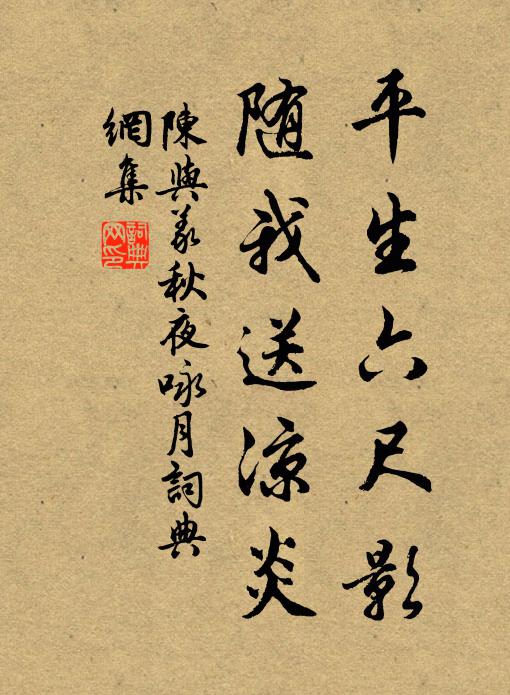 平生六尺影
随我送凉炎
陳與義秋夜咏月詞典
網集
詞典
网印